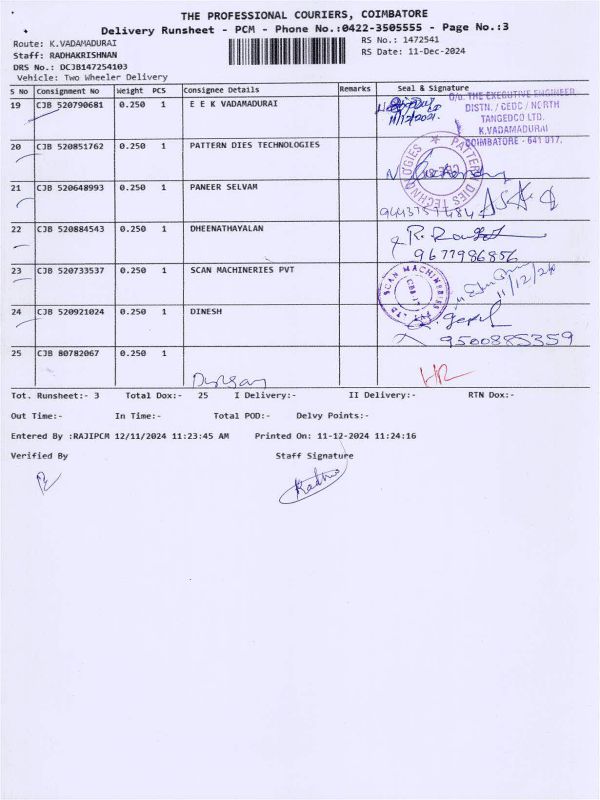 THE PROFESSIONAL COURIERS, COIMBATORE
Delivery Runsheet - PCM - Phone No.:0422-3505555 - Page No.:3
Route: K.VADAMADURAI RS No.: 1472541
Staff: RADHAKRISHNAN RS Date: 11-Dec-2024
DRS No.: DCJB147254103
Vehicle: Two Wheeler Delivery
S No Consignment No Weight PCS Consignee Details Remarks Seal & Signature
19 CJB 520790681 0.250 1 E E K VADAMADURAI
O/o. THE EXECUTIVE ENGINEER
DISTN. / CEDC / NORTH
TANGEDCO LTD.
K.VADAMADURAI
COIMBATORE - 641 017.
20 CJB 520851762 0.250 1 PATTERN DIES TECHNOLOGIES
PATTERN DIES TECHNOLOGIES
21 CJB 520648993 0.250 1 PANEER SELVAM
22 CJB 520884543 0.250 1 DHEENATHAYALAN
9677986856
23 CJB 520733537 0.250 1 SCAN MACHINERIES PVT
SCAN MACHINERIES PVT LTD
11/12/24
24 CJB 520921024 0.250 1 DINESH
9500885359
25 CJB 80782067 0.250 1
Tot. Runsheet:- 3 Total Dox:- 25 I Delivery:- II Delivery:- RTN Dox:-
Out Time:- In Time:- Total POD:- Delvy Points:-
Entered By :RAJIPCM 12/11/2024 11:23:45 AM Printed On: 11-12-2024 11:24:16
Verified By Staff Signature